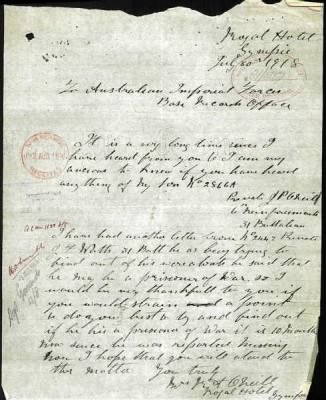 Royal Hotel
Gympie
July 20th 1918
To Australian Imperial Forces
Base Records Office
It is a very long time since I
have heard from you & I am very
anxious to know if you have heard
any thing of My Son No 2866A
Private J P O'Neill
6 Reinforcements
31 Battalion
I have had another letter from No Private
F Watts 31 Batt he as being trying to
find out of his wereabouts he said that
he may be a prisoner of war. so I
would be very thankfull to you if
you would strain a point
& do your best & try and find out
if he his a prisoner of War it is 10 Months
now since he was reported missing
Now I hope that you will attend to
this matter You truly
Mrs O'Neill
Royal Hotel Gympie